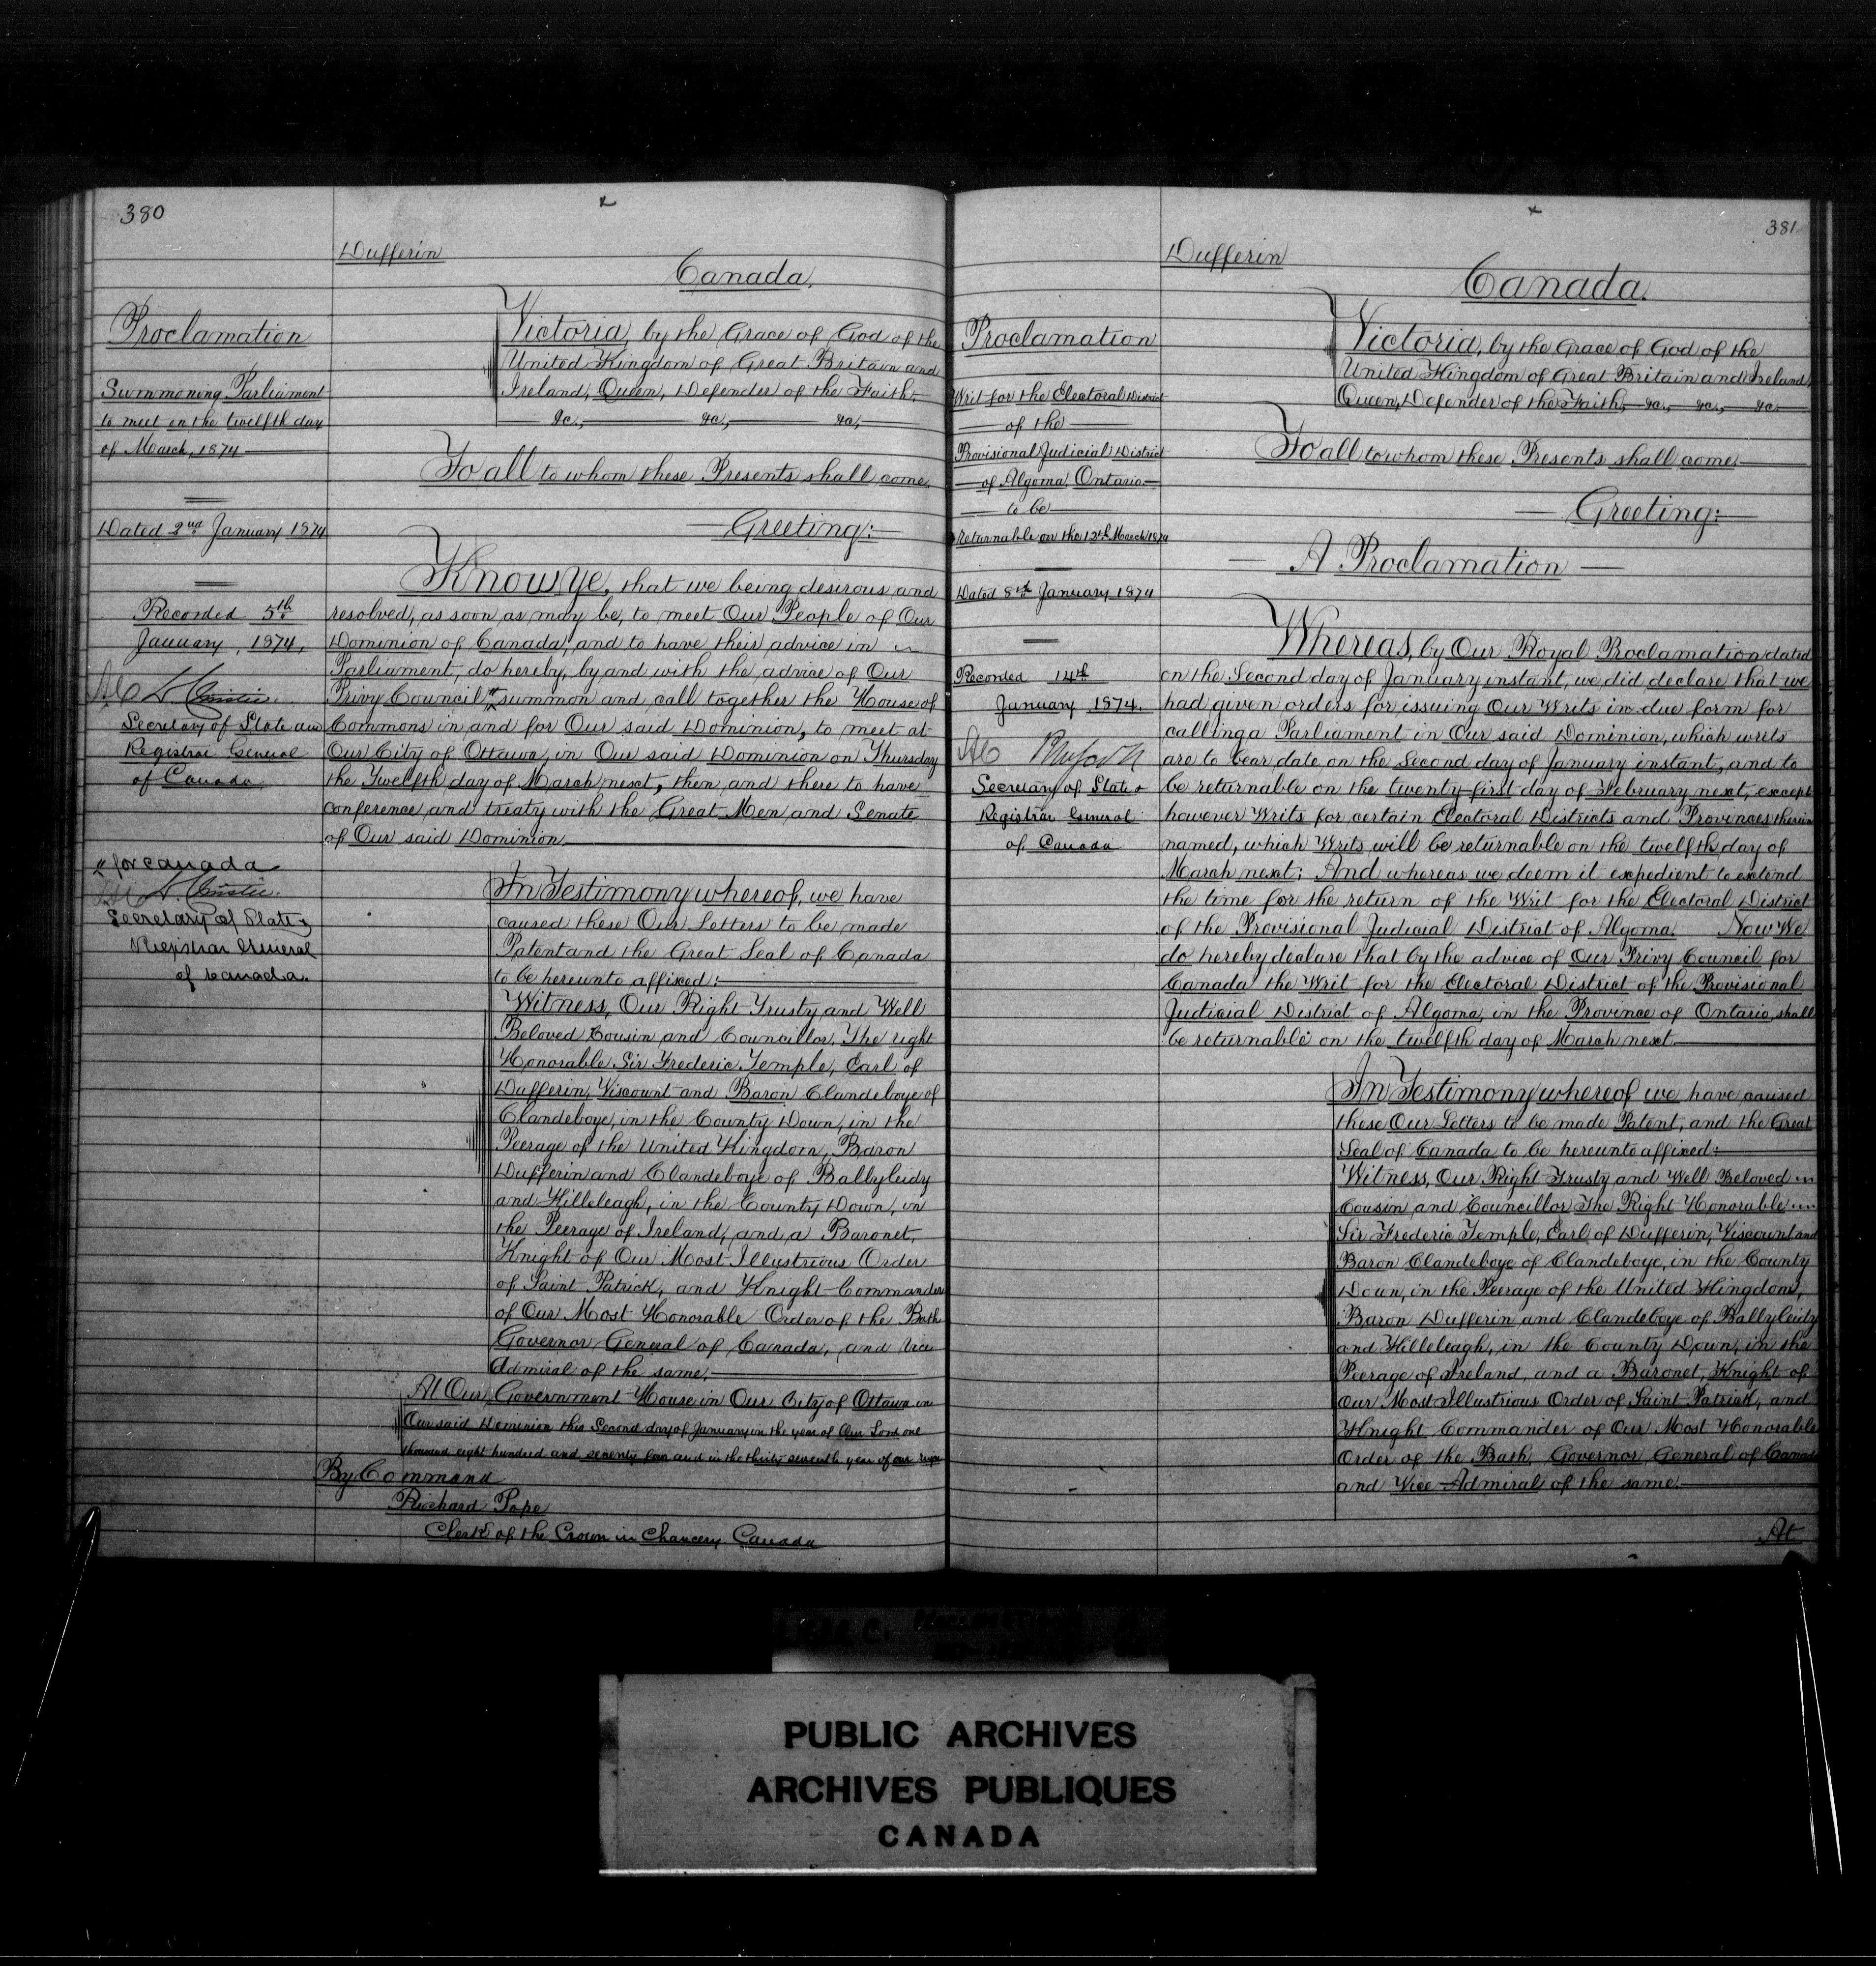 380
Dufferin
Canada.
Proclamation
Summoning Parliament
to meet on the twelfth day
of March, 1874
Dated 2nd January 1874
Recorded 5th
January, 1874,
D. Christie.
Secretary of State and
Registrar General
of Canada
" for Canada
D. Christie.
Secretary of State &
Registrar General
of Canada.
Victoria, by the Grace of God of the
United Kingdom of Great Britain and
Ireland, Queen, Defender of the Faith,
&c., &c., &c.,
To all to whom these Presents shall come,
Greeting:
Know ye, that we being desirous and
resolved, as soon as may be, to meet Our People of Our
Dominion of Canada, and to have their advice in
Parliament, do hereby, by and with the advice of Our
Privy Council " summon and call together the House of
Commons in and for Our said Dominion, to meet at
Our City of Ottawa, in Our said Dominion on Thursday
the Twelfth day of March next, then and there to have
conference and treaty with the Great Men and Senate
of Our said Dominion.
In Testimony whereof, we have
caused these Our Letters to be made
Patent and the Great Seal of Canada
to be hereunto affixed:
Witness, Our Right Trusty and Well
Beloved Cousin and Councillor, The right
Honorable Sir Frederic Temple, Earl of
Dufferin, Viscount and Baron Clandeboye of
Clandeboye, in the County Down, in the
Peerage of the United Kingdom, Baron
Dufferin and Clandeboye of Ballyleidy
and Killeleagh, in the County Down, in
the Peerage of Ireland, and a Baronet,
Knight of Our Most Illustrious Order
of Saint Patrick, and Knight Commander
of Our Most Honorable Order of the Bath
Governor General of Canada, and Vice
Admiral of the same.
At Our Government House in Our City of Ottawa in
Our said Dominion this Second day of January in the year of Our Lord one
thousand eight hundred and seventy four and in the thirty seventh year of our reign
By Command
Richard Pope
Clerk of the Crown in Chancery Canada
381
Dufferin
Canada.
Proclamation
Writ for the Electoral District
of the
Provisional Judicial District
of Algoma, Ontario.
to be
returnable on the 12th March 1874
Dated 8th January 1874
Recorded 14th
January 1874.
Secretary of State &
Registrar General
of Canada
Victoria, by the Grace of God of the
United Kingdom of Great Britain and Ireland,
Queen, Defender of the Faith, &c., &c., &c.
To all to whom these Presents shall come,
Greeting:
A Proclamation
Whereas, by Our Royal Proclamation dated
on the Second day of January instant, we did declare that we
had given orders for issuing Our Writs in due form for
calling a Parliament in Our said Dominion, which writs
are to bear date on the Second day of January instant, and to
be returnable on the twenty-first day of February next, except
however Writs for certain Electoral Districts and Provinces therein
named, which Writs will be returnable on the twelfth day of
March next; And whereas we deem it expedient to extend
the time for the return of the Writ for the Electoral District
of the Provisional Judicial District of Algoma. Now We
do hereby declare that by the advice of Our Privy Council for
Canada the Writ for the Electoral District of the Provisional
Judicial District of Algoma, in the Province of Ontario, shall
be returnable on the twelfth day of March next.
In Testimony whereof we have caused
these Our Letters to be made Patent, and the Great
Seal of Canada to be hereunto affixed:
Witness, Our Right Trusty and Well Beloved
Cousin and Councillor The Right Honorable
Sir Frederic Temple, Earl of Dufferin, Viscount and
Baron Clandeboye of Clandeboye, in the County
Down, in the Peerage of the United Kingdom,
Baron Dufferin and Clandeboye of Ballyleidy
and Killeleagh, in the County Down, in the
Peerage of Ireland, and a Baronet, Knight of
Our Most Illustrious Order of Saint Patrick, and
Knight Commander of Our Most Honorable
Order of the Bath, Governor General of Canada
and Vice-Admiral of the same.
At
PUBLIC ARCHIVES
ARCHIVES PUBLIQUES
CANADA